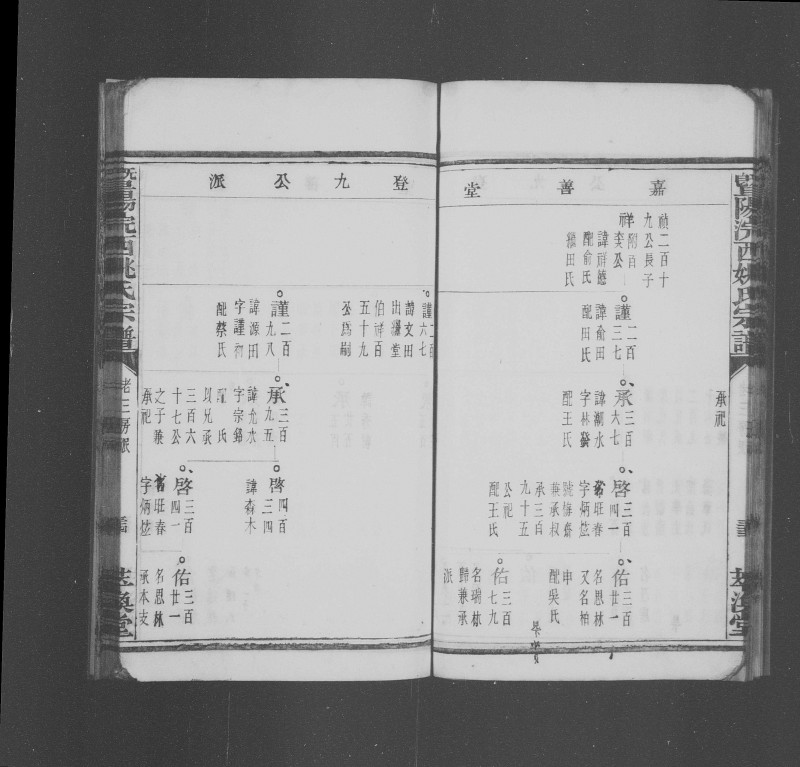 暨陽浣西姚氏宗譜
萃渙堂
嘉善堂
承祀
禎二百十
九公長子
祥附百
奕公
諱祥德
配俞氏
繼田氏
謹二百
三七
諱俞田
配田氏
承三百
六七
諱潮水
字林發
配王氏
啓三百
四一
名旺春
字炳竑
號梅齋
兼承叔
承三百
九十五
公祀
配王氏
佑三百
廿一
名思林
又名柏
申
配吳氏
佑三百
七九
名瑞林
歸兼承
派
登九公派
謹二百
六七
諱文田
出繼堂
伯祥百
五十九
公爲嗣
謹二百
九八
諱源田
字謹初
配蔡氏
承三百
九五
諱允水
字宗錦
配氏
以兄承
三百六
十七公
之子兼
承祀
啓四百
三四
諱森木
啓三百
四一
名旺春
字炳竑
佑三百
廿一
名思林
承本支
暨陽浣西姚氏宗譜
老三房派
萃渙堂